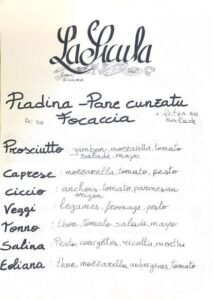 La Sicula
Piadina - Pane cunzatu
+ frites ou salade
Focaccia
Prosciutto : jambon, mozzarella, tomato
salade, mayo
Caprese : mozzarella, tomato, pesto
Ciccio : anchois, tomato, parmesan
origan
Veggi : legumes, fromage, pesto
Tonno : thon, tomato, salade, mayo
Salina : Pesto, courgettes, ricotta, menthe
Eoliana : thon, mozzarella, aubergines, tomato